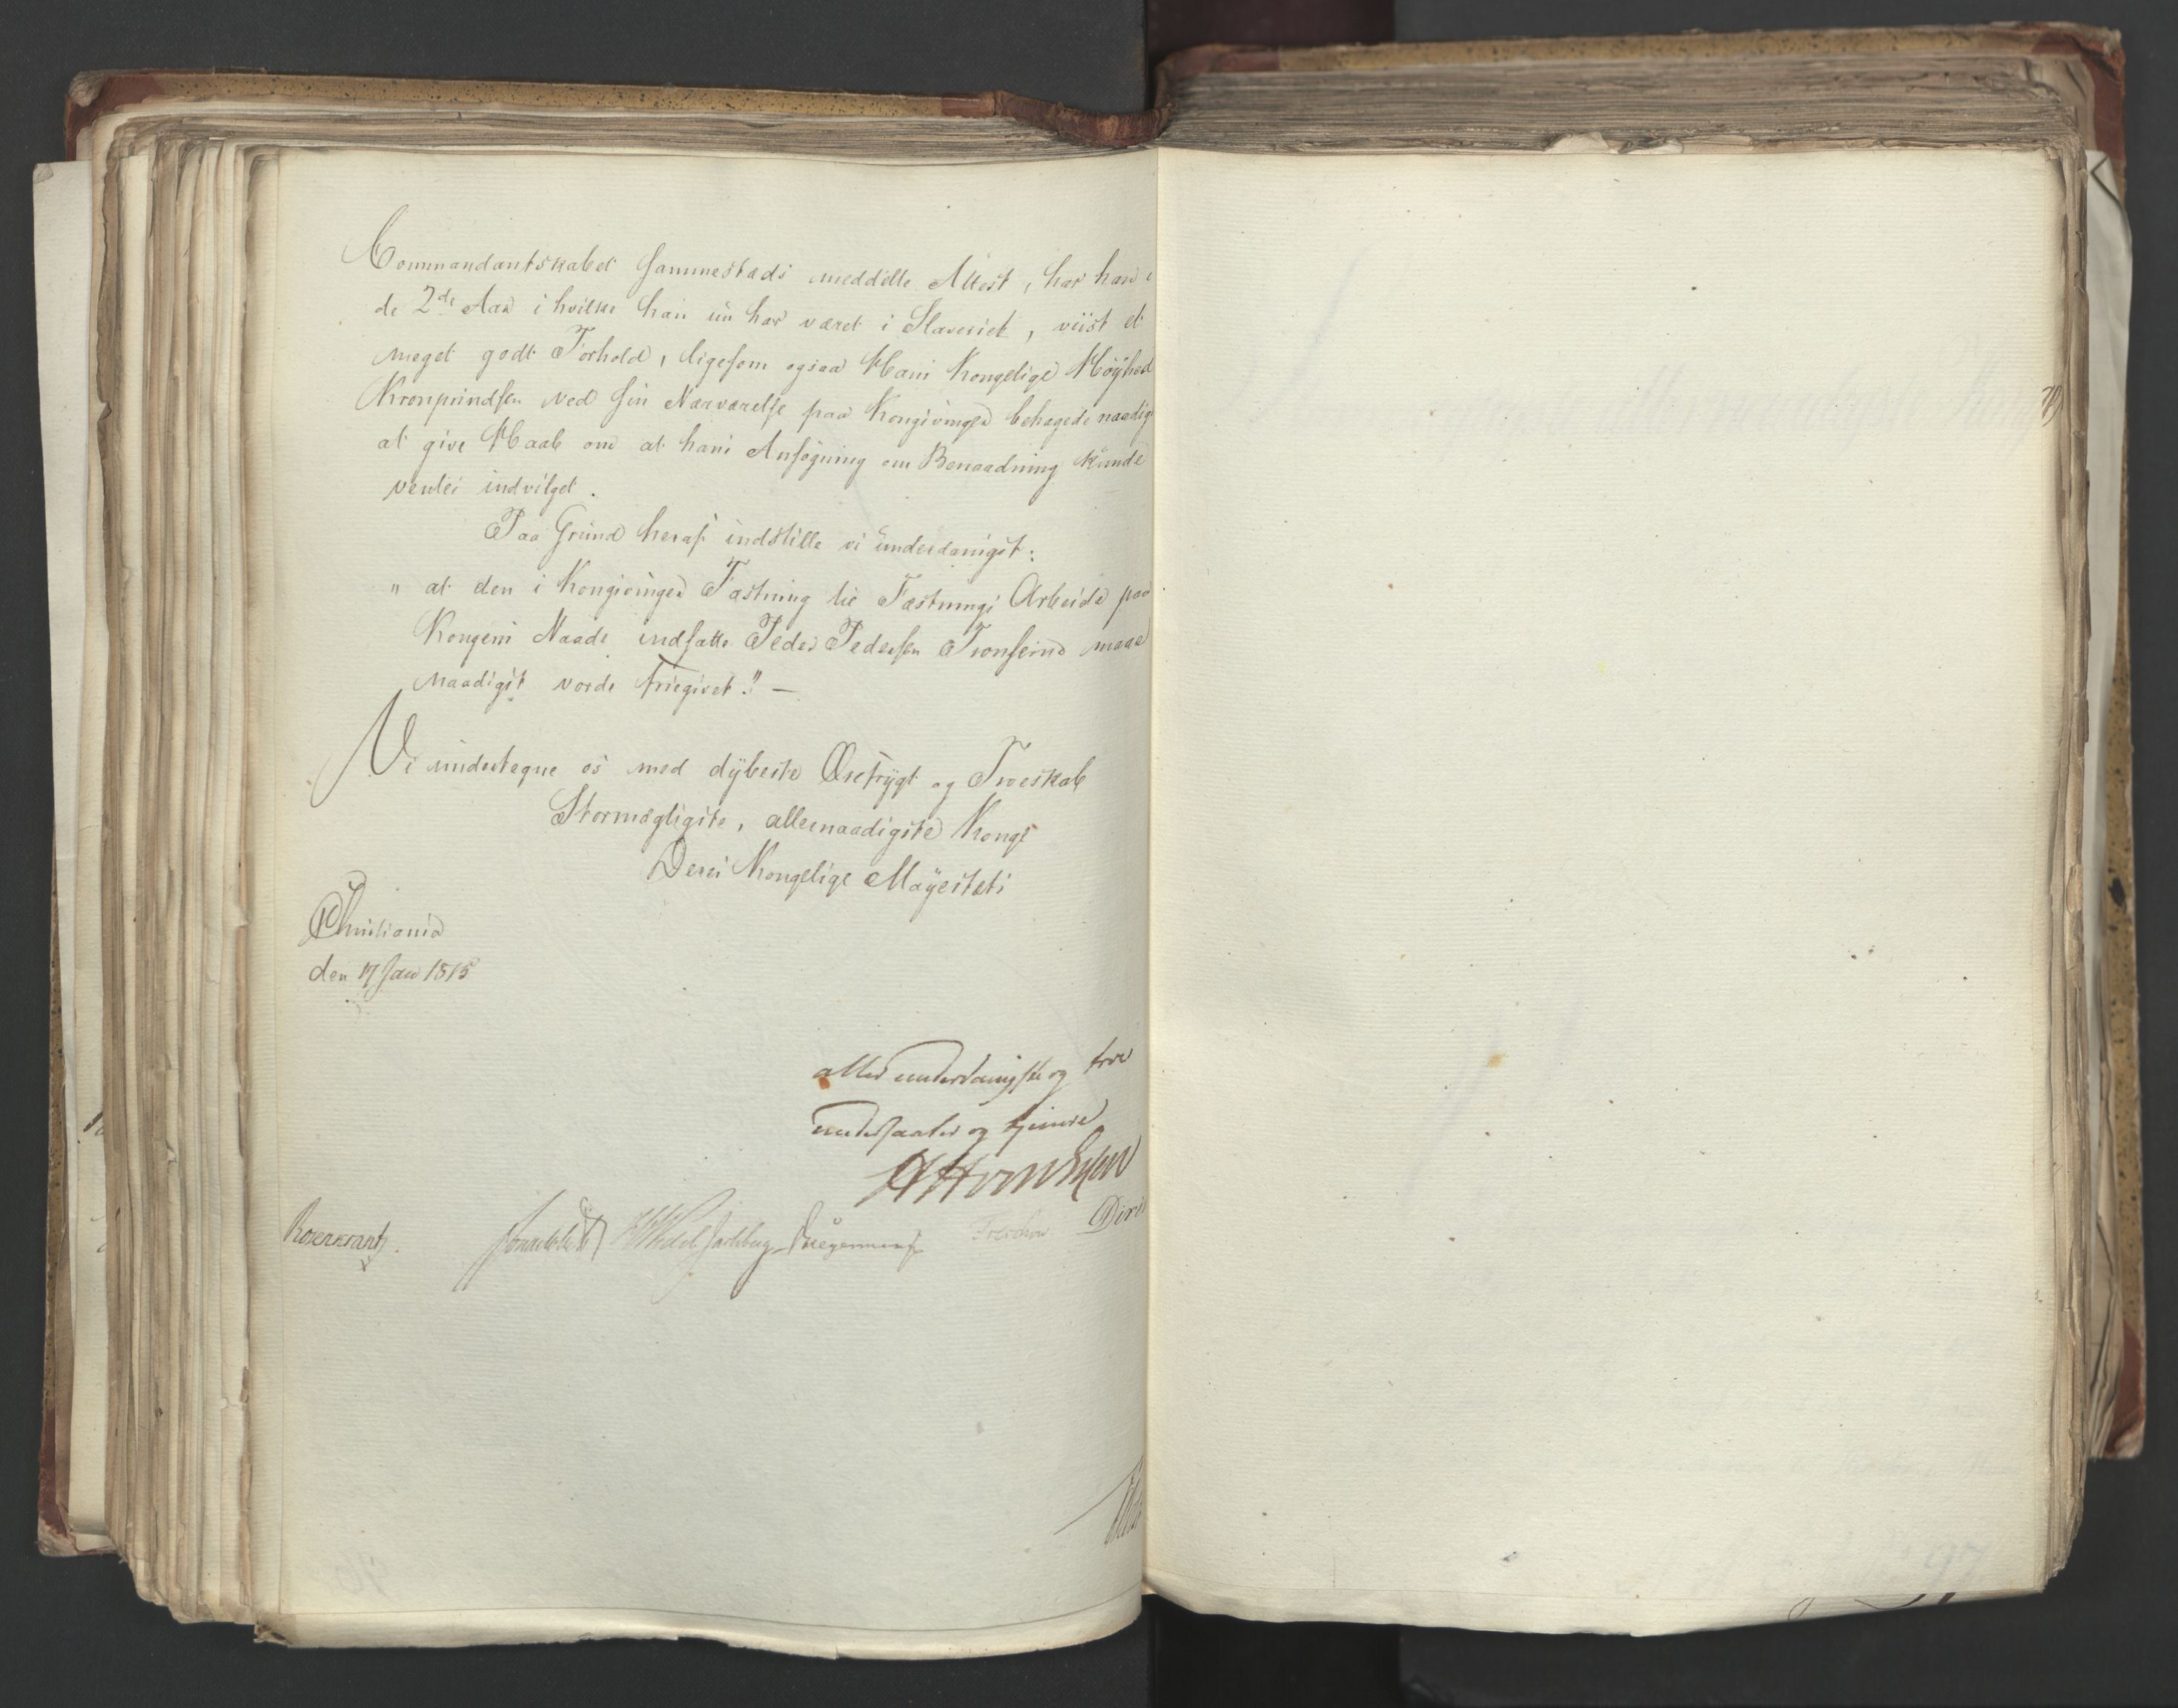 Commandantskabet sammestads meddelte Attest, har han i
de 2de Aar i hvilke han nu har været i Slaveriet, viist et
meget godt Forhold, ligesom ogsaa Hans Kongelige Høyhed
Kronprindsen ved sin Nærværelse paa Kongsvinger behagede naadigst
at give Haab om at hans Ansøgning om Benaadning kunde
ventes indvilget.
Paa Grund heraf indstille vi underdanigst:
" at den i Kongsvinger Fæstning til Fæstnings Arbeide paa
Kongens Naade indsatte Peder Pedersen Tronserud maae
naadigst vorde friegivet." —
Vi undertegne os med dybeste Ærefrygt og Troeskab
Stormægtigste, allernaadigste Konge
Deres Kongelige Mayestæts
Christiania
den 17 Jan 1815
allerunderdanigste og troe
undersaatter og tjenere
Rosenkrantz. Sommerhielm HWedel Jarlsberg Hegermann Treschow
97